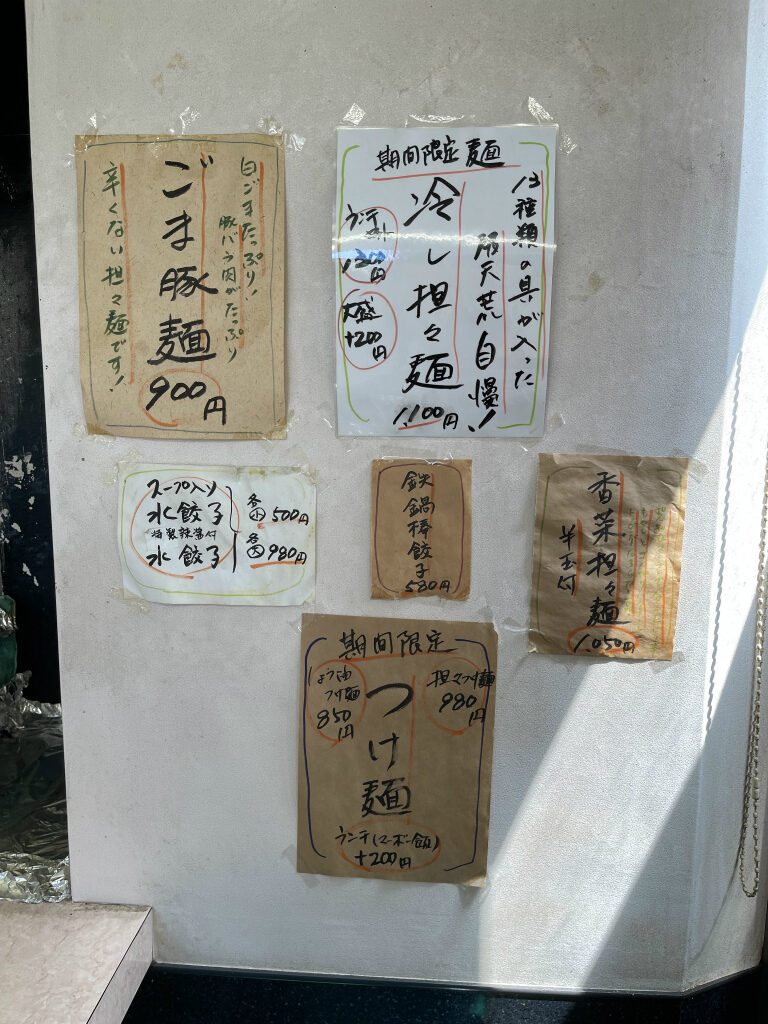 白ごまたっぷり!
豚バラ肉がたっぷり
ごま豚麺
900円
辛くない担々麺です!
期間限定麺
13種類の具が入った
破天荒自慢!
冷し担々麺
1,100円
ランチ
1300円
大盛
+200円
スープ入り
水餃子
特製辣醤付
水餃子
各小 500円
各大 980円
鉄鍋棒餃子
580円
香菜担々麺
半玉付
1,050円
期間限定
担々つけ麺
980円
つけ麺
しょうゆ
つけ麺
850円
ランチ(マーボー飯)
+200円